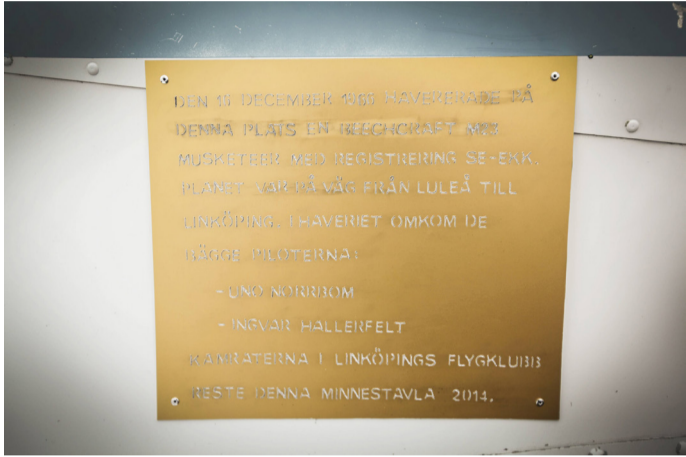 DEN DECEMBER HAVERERADE PÅ
DENNA PLATS EN BEECHCRAFT
MUSKETEER MED REGISTRERING SE-EKK.
PLANET VAR PÅ VÄG FRÅN LULEÅ TILL
LINKÖPING. I HAVERIET OMKOM DE
BÄGGE PILOTERNA:
- UNO NORRBOM
- INGVAR HALLERFELT
KAMRATERNA I LINKÖPINGS FLYGKLUBB
RESTE DENNA MINNESTAVLA 2014.